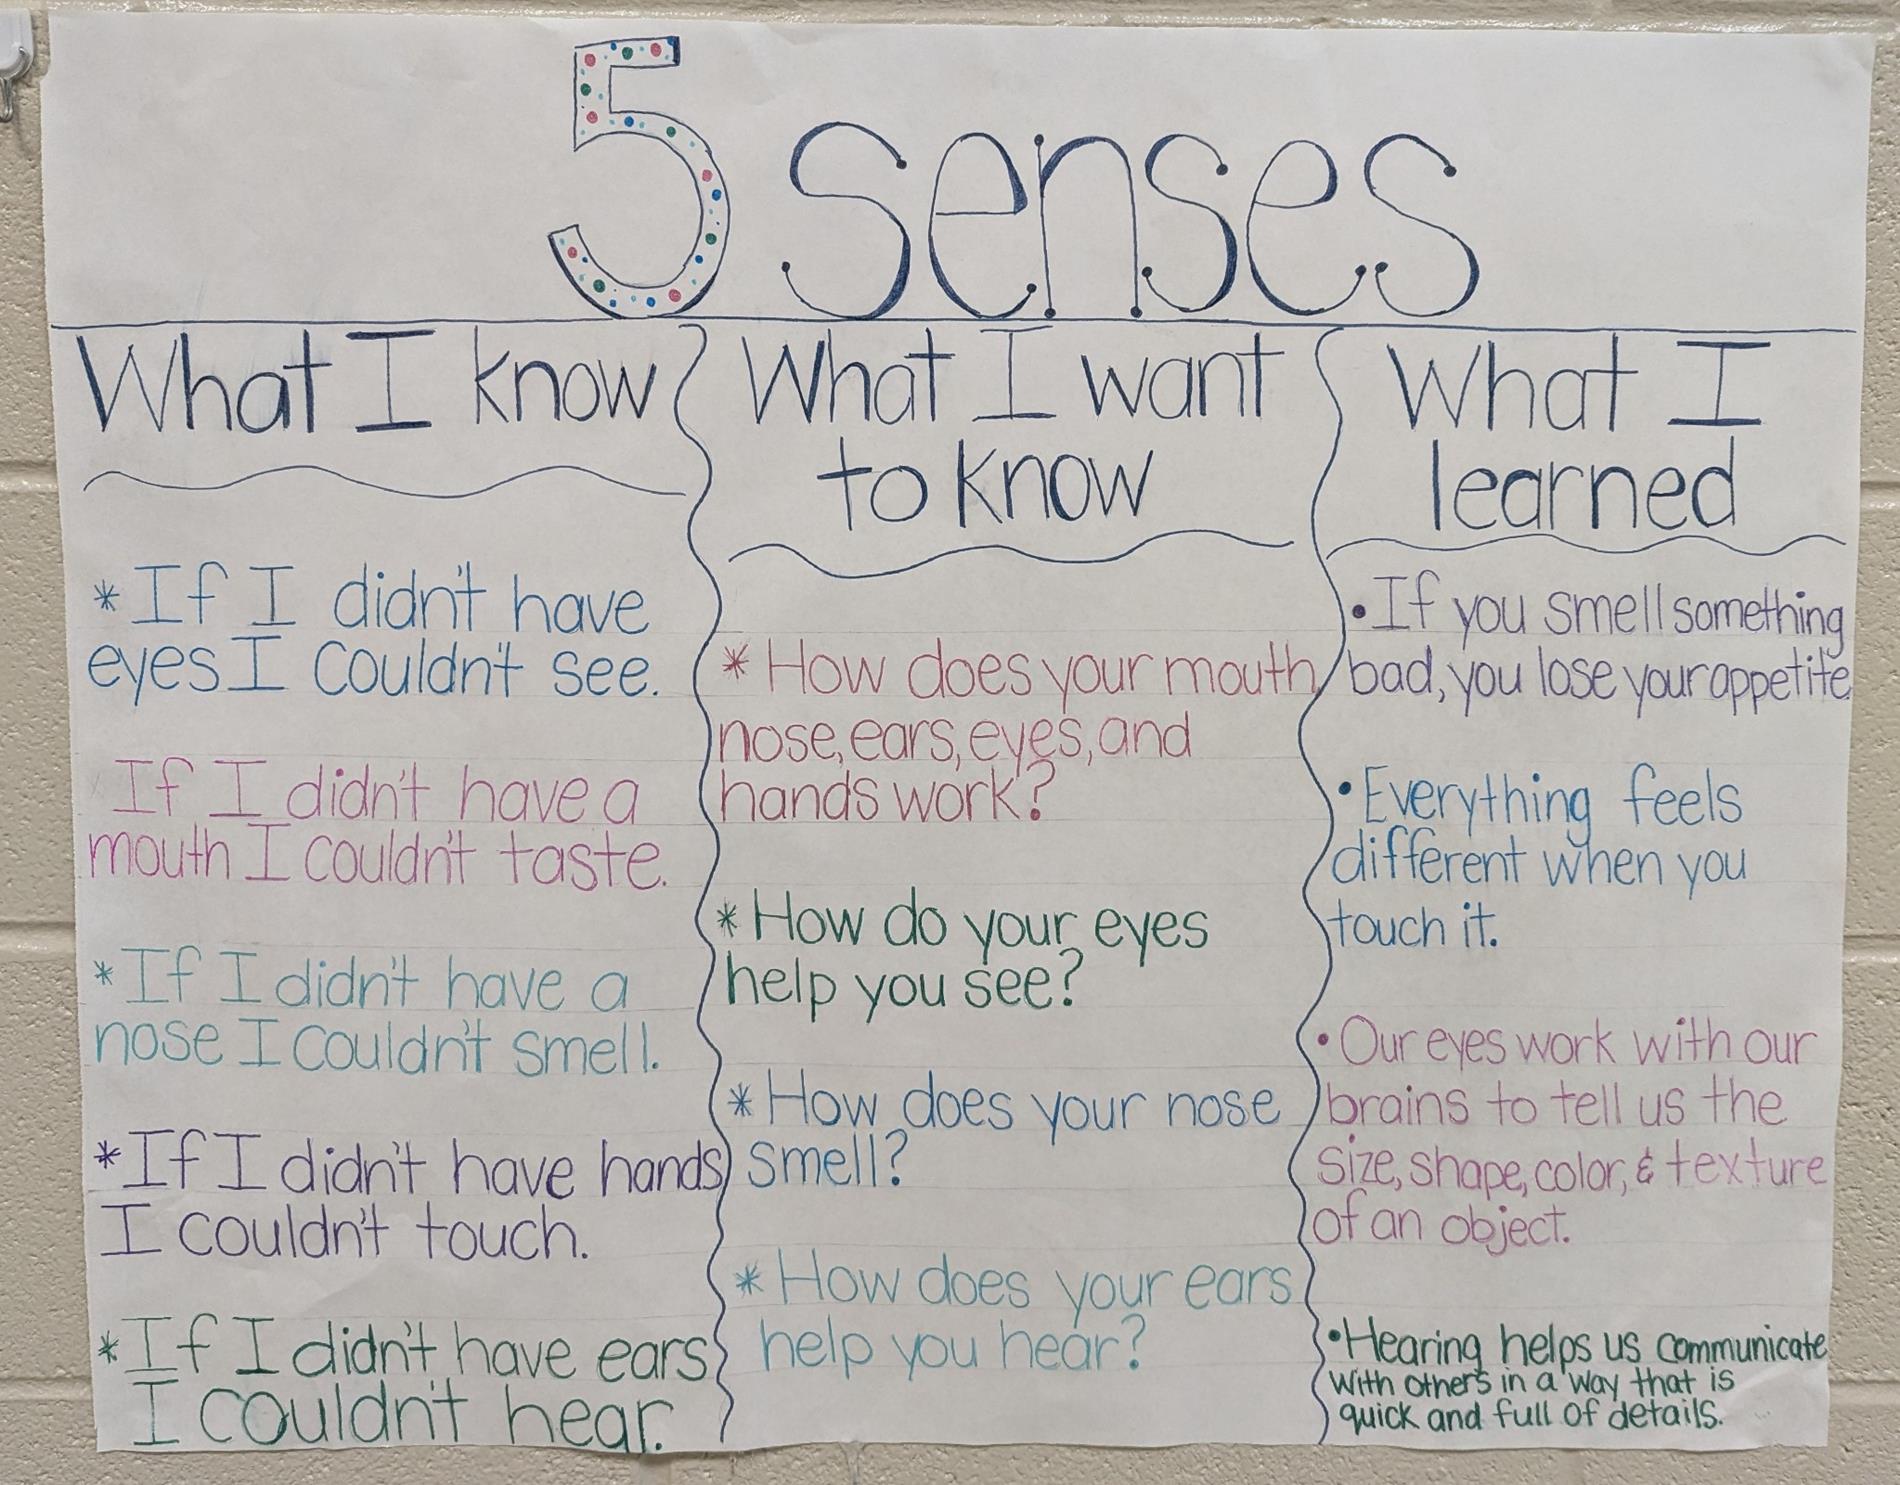 5 senses
What I know
* If I didn't have
eyes I couldn't see.
If I didn't have a
mouth I couldn't taste.
* If I didn't have a
nose I couldn't smell.
* If I didn't have hands
I couldn't touch.
* If I didn't have ears
I couldn't hear.
What I want
to know
* How does your mouth,
nose, ears, eyes, and
hands work?
* How do your eyes
help you see?
* How does your nose
smell?
* How does your ears
help you hear?
What I
learned
• If you smell something
bad, you lose your appetite
• Everything feels
different when you
touch it.
• Our eyes work with our
brains to tell us the
size, shape, color, & texture
of an object.
• Hearing helps us communicate
with others in a way that is
quick and full of details.